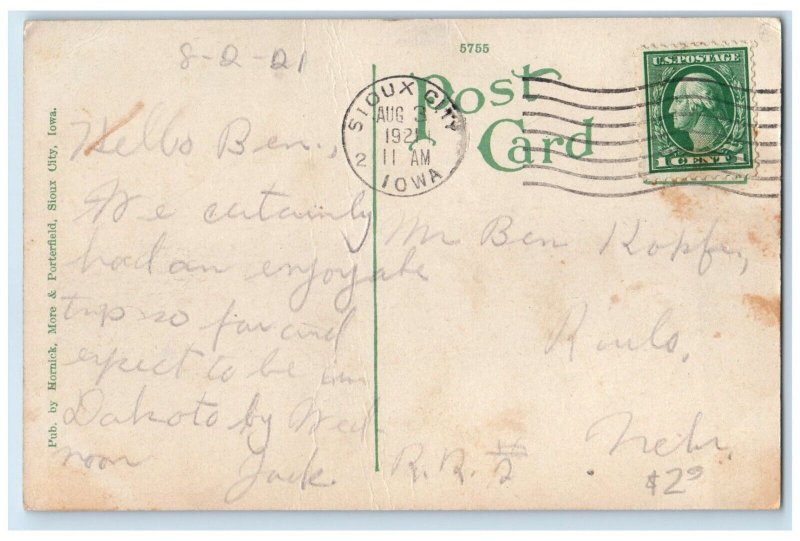 8-2-21
5755
Post
Card
SIOUX CITY
AUG 3
1921
11 AM
2
IOWA
U.S. POSTAGE
1 CENT 1
Pub. by Hornick, More & Porterfield, Sioux City, Iowa.
Hello Ben.,
We certainly
had an enjoyable
trip so far and
expect to be in
Dakota by Wed
noon Jack.
Mr Ben Kopfer,
Rulo,
Nebr.
R.R. #2
$2.00